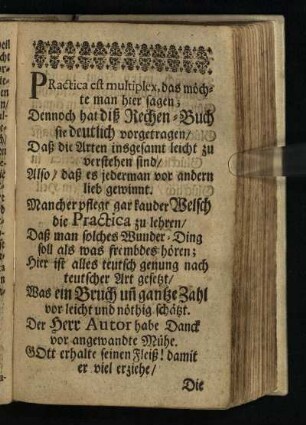 PRactica est multiplex, das möch-
te man hier sagen;
Dennoch hat diß Rechen-Buch
sie deutlich vorgetragen/
Daß die Arten insgesamt leicht zu
verstehen sind/
Also/ daß es jederman vor andern
lieb gewinnt.
Mancher pflegt gar kauder Welsch
die Practica zu lehren/
Daß man solches Wunder-Ding
soll als was frembdes hören;
Hier ist alles teutsch genung nach
teutscher Art gesetzt/
Was ein Bruch uñ gantze Zahl
vor leicht und nöthig schätzt.
Der Herr Autor habe Danck
vor angewandte Mühe.
GOtt erhalte seinen Fleiß! damit
er viel erziehe/
Die